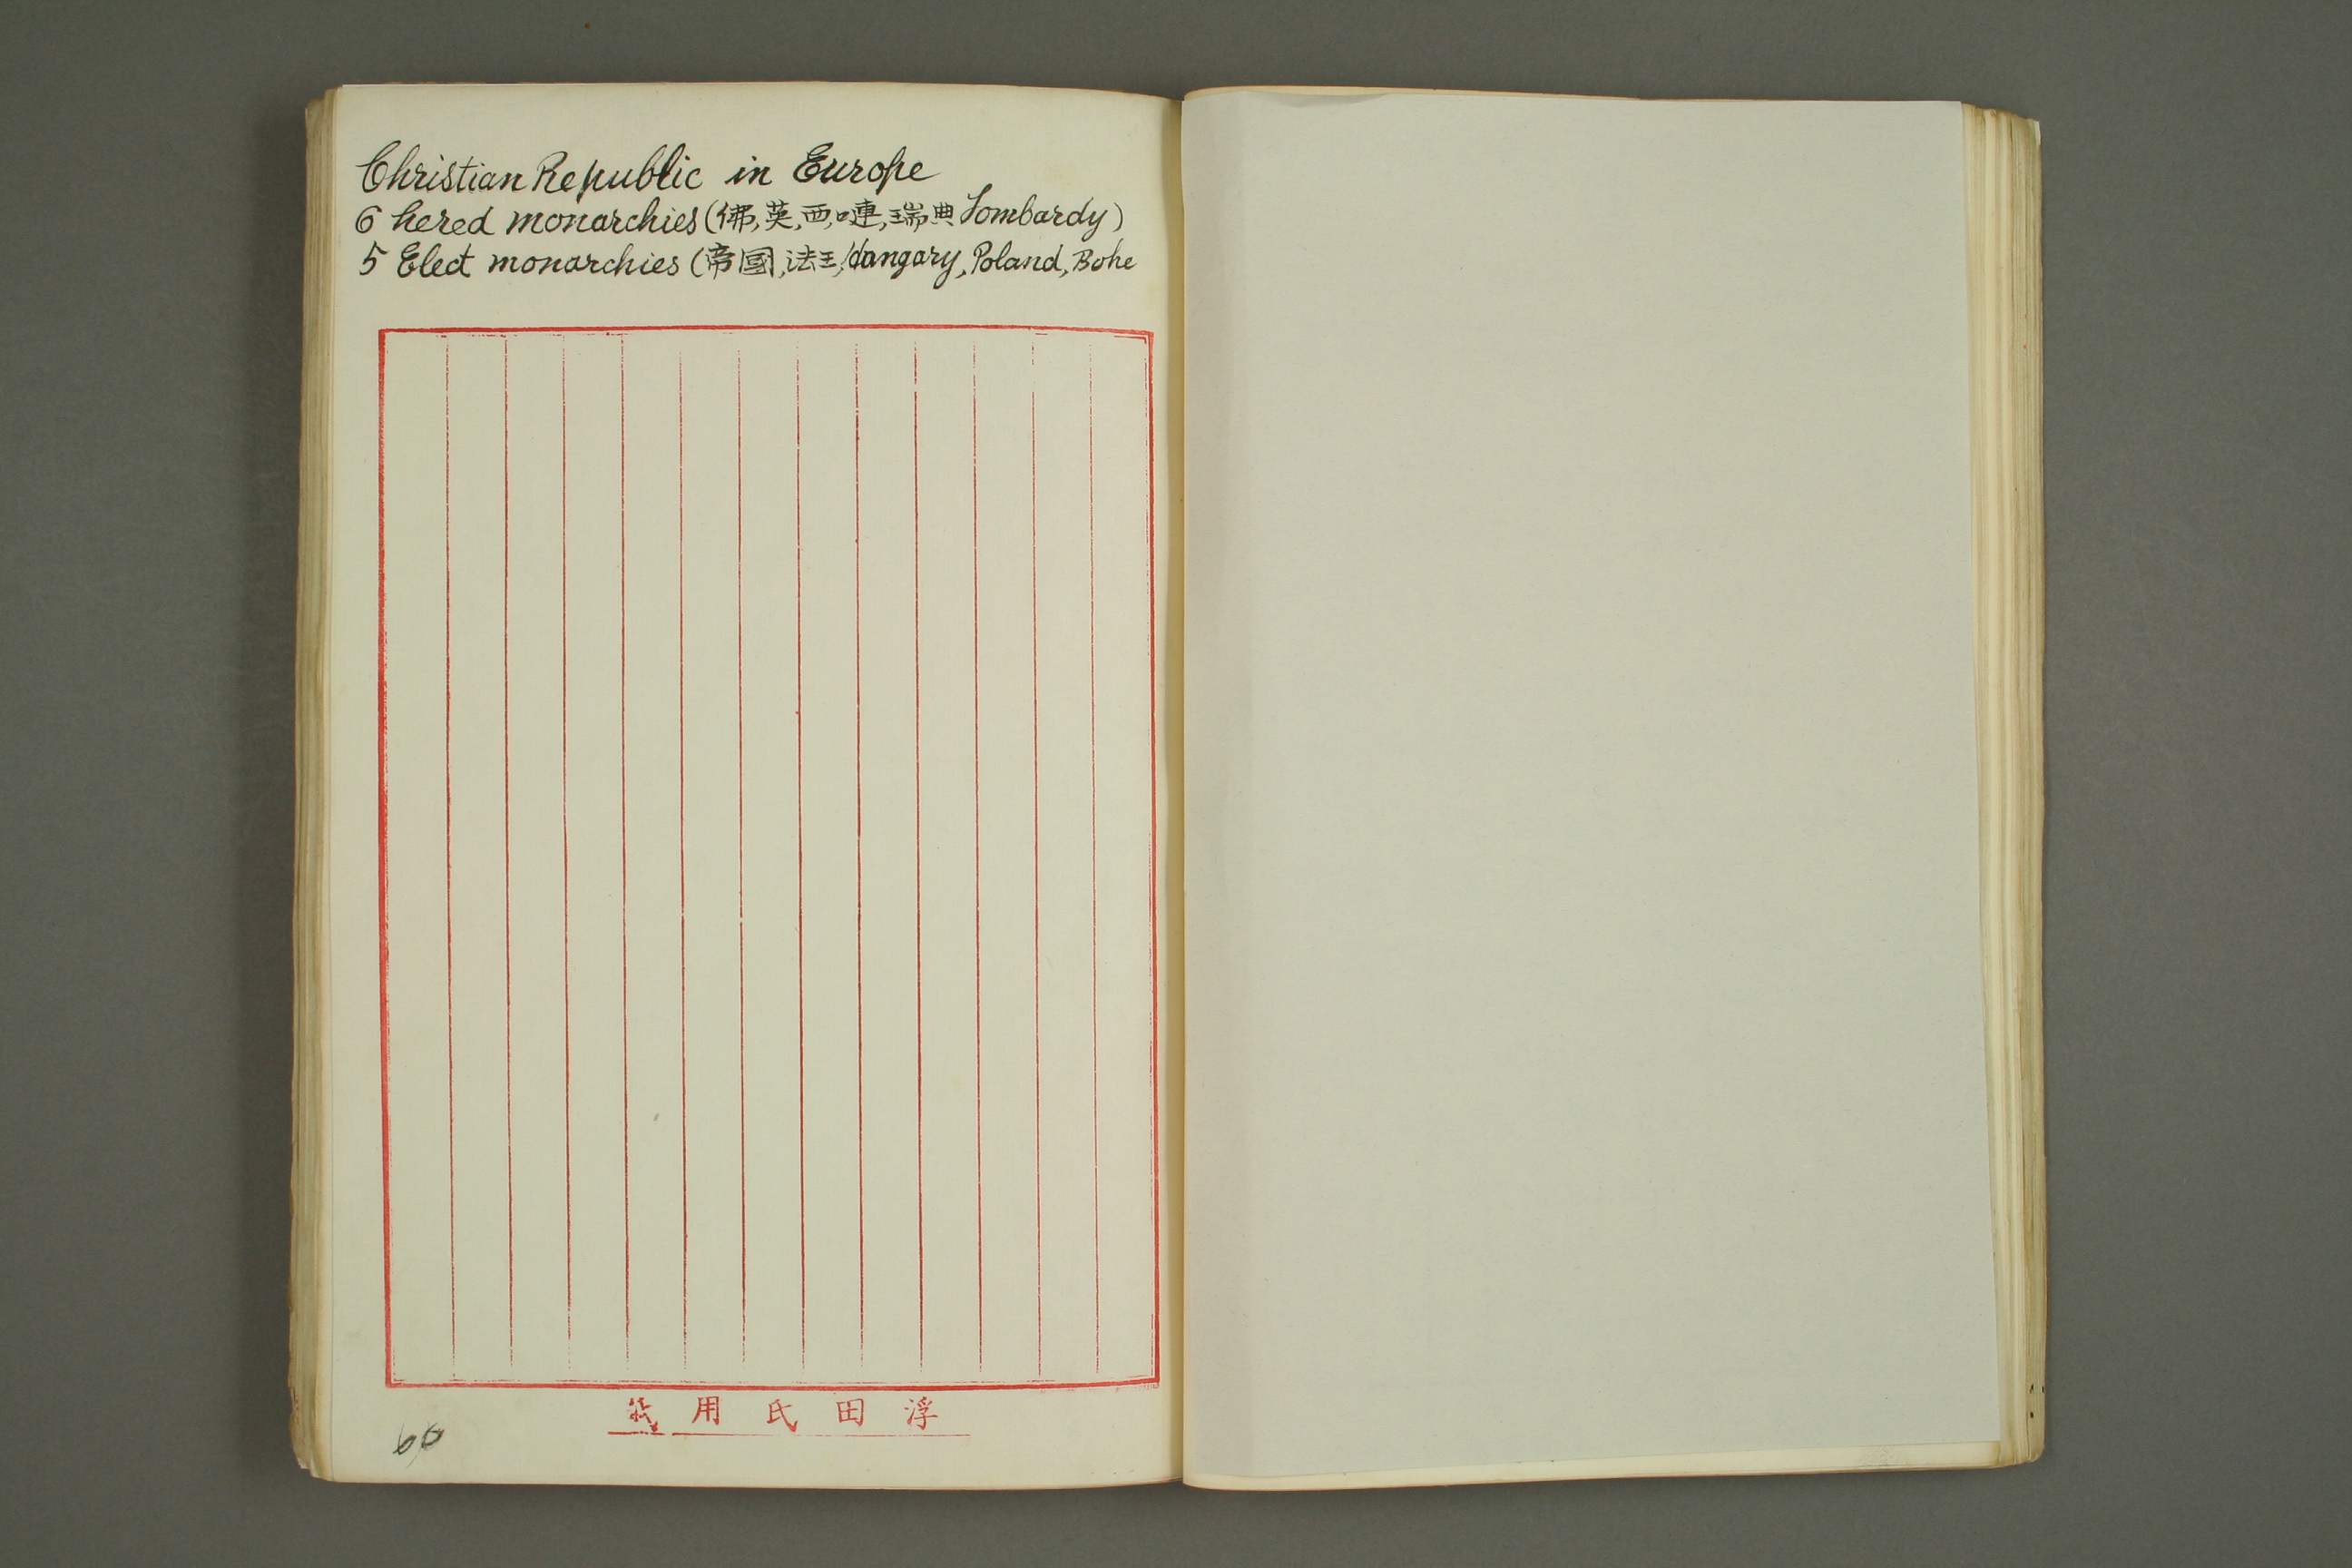 Christian Republic in Europe
6 hered monarchies (佛,英,西,嗹,瑞典 Lombardy)
5 Elect monarchies (帝國,法王,Hangary, Poland, Bohe
浮田氏用
60